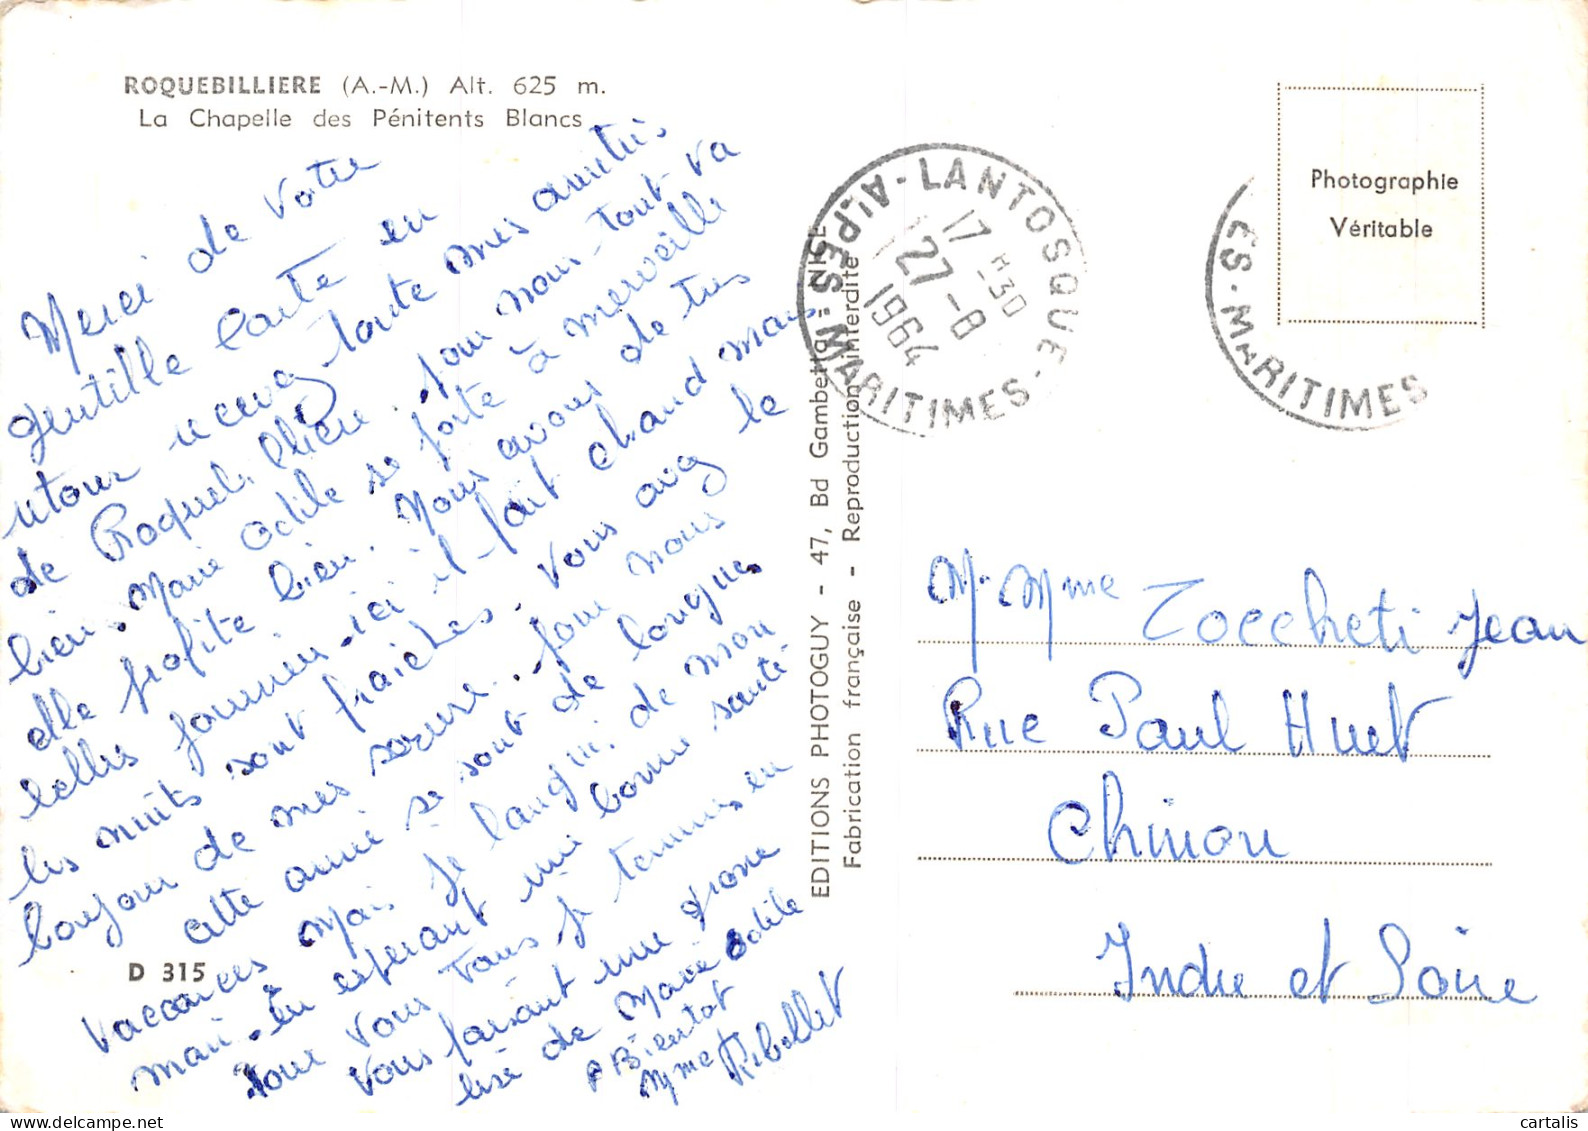 ROQUEBILLIERE (A.-M.) Alt. 625 m.
La Chapelle des Pénitents Blancs
Merci de votre
gentille carte en
retour recevez toute mes amitiés
de Roquebillière. pour nous tout va
bien, Marie Odile se porte à merveille
elle profite bien. Nous avons de très
belles journées ici il fait chaud mais
les nuits sont fraîches. Vous avez le
bonjour de mes soeurs... pour nous
cette année se sont de longues
vacances mais je languis de mon
mari. en espérant une bonne santé
pour vous tous je termine en
vous faisant une grosse
bise de Marie Odile
Bientot
Mme Ribollet
D 315
EDITIONS PHOTOGUY - 47, Bd Gambetta - NICE
Fabrication française - Reproduction interdite
LANTOSQUE - ALPES-MARITIMES -
17 H 30
27 - 8
1964
ES-MARITIMES
Photographie
Véritable
M. Mme Toccheti Jean
Rue Paul Huet
Chinon
Indre et Loire
cartalis